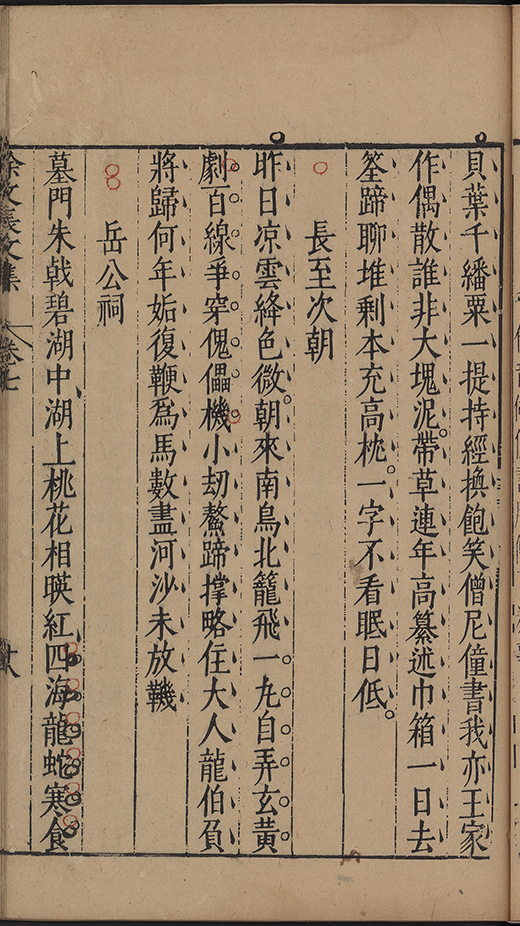 貝葉千繙粟一提持經換飽笑僧尼僮書我亦王家
作偶散誰非大塊泥帶草連年高纂述巾箱一日去
筌蹄聊堆剩本充高枕一字不看眠日低
長至次朝
昨日凉雲絳色微朝來南鳥北籠飛一九自弄玄黃
劇百線爭穿傀儡機小刼鰲蹄撑略住大人龍伯負
將歸何年姤復鞭爲馬數盡河沙未放鞿
岳公祠
墓門朱戟碧湖中湖上桃花相暎紅四海龍蛇寒食
徐文長文集
卷七